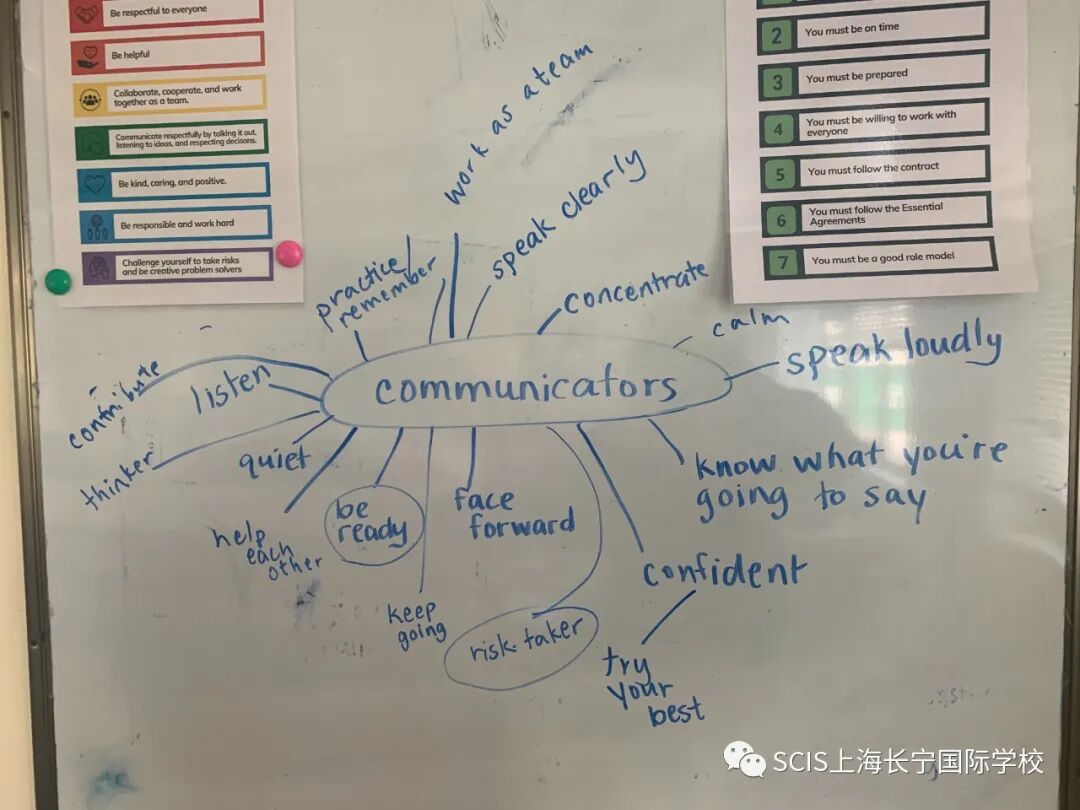 Be respectful to everyone
Be helpful
Collaborate, cooperate, and work
together as a team.
Communicate respectfully by talking it out,
listening to ideas, and respecting decisons.
Be kind, caring, and positive.
Be responsible and work hard
Challenge yourself to take risks
and be creative problem solvers
2 You must be on time
3 You must be prepared
4 You must be willing to work with
everyone
5 You must follow the contract
6 You must follow the Essential
Agreements
7 You must be a good role model
work as a team
speak clearly
practice/
remember
concentrate
calm
speak loudly
contribute
listen
communicators
thinker
quiet
know what you're
going to say
help
each
other
be
ready
face
forward
keep
going
risk-taker
confident
try
your
best
SCIS上海长宁国际学校